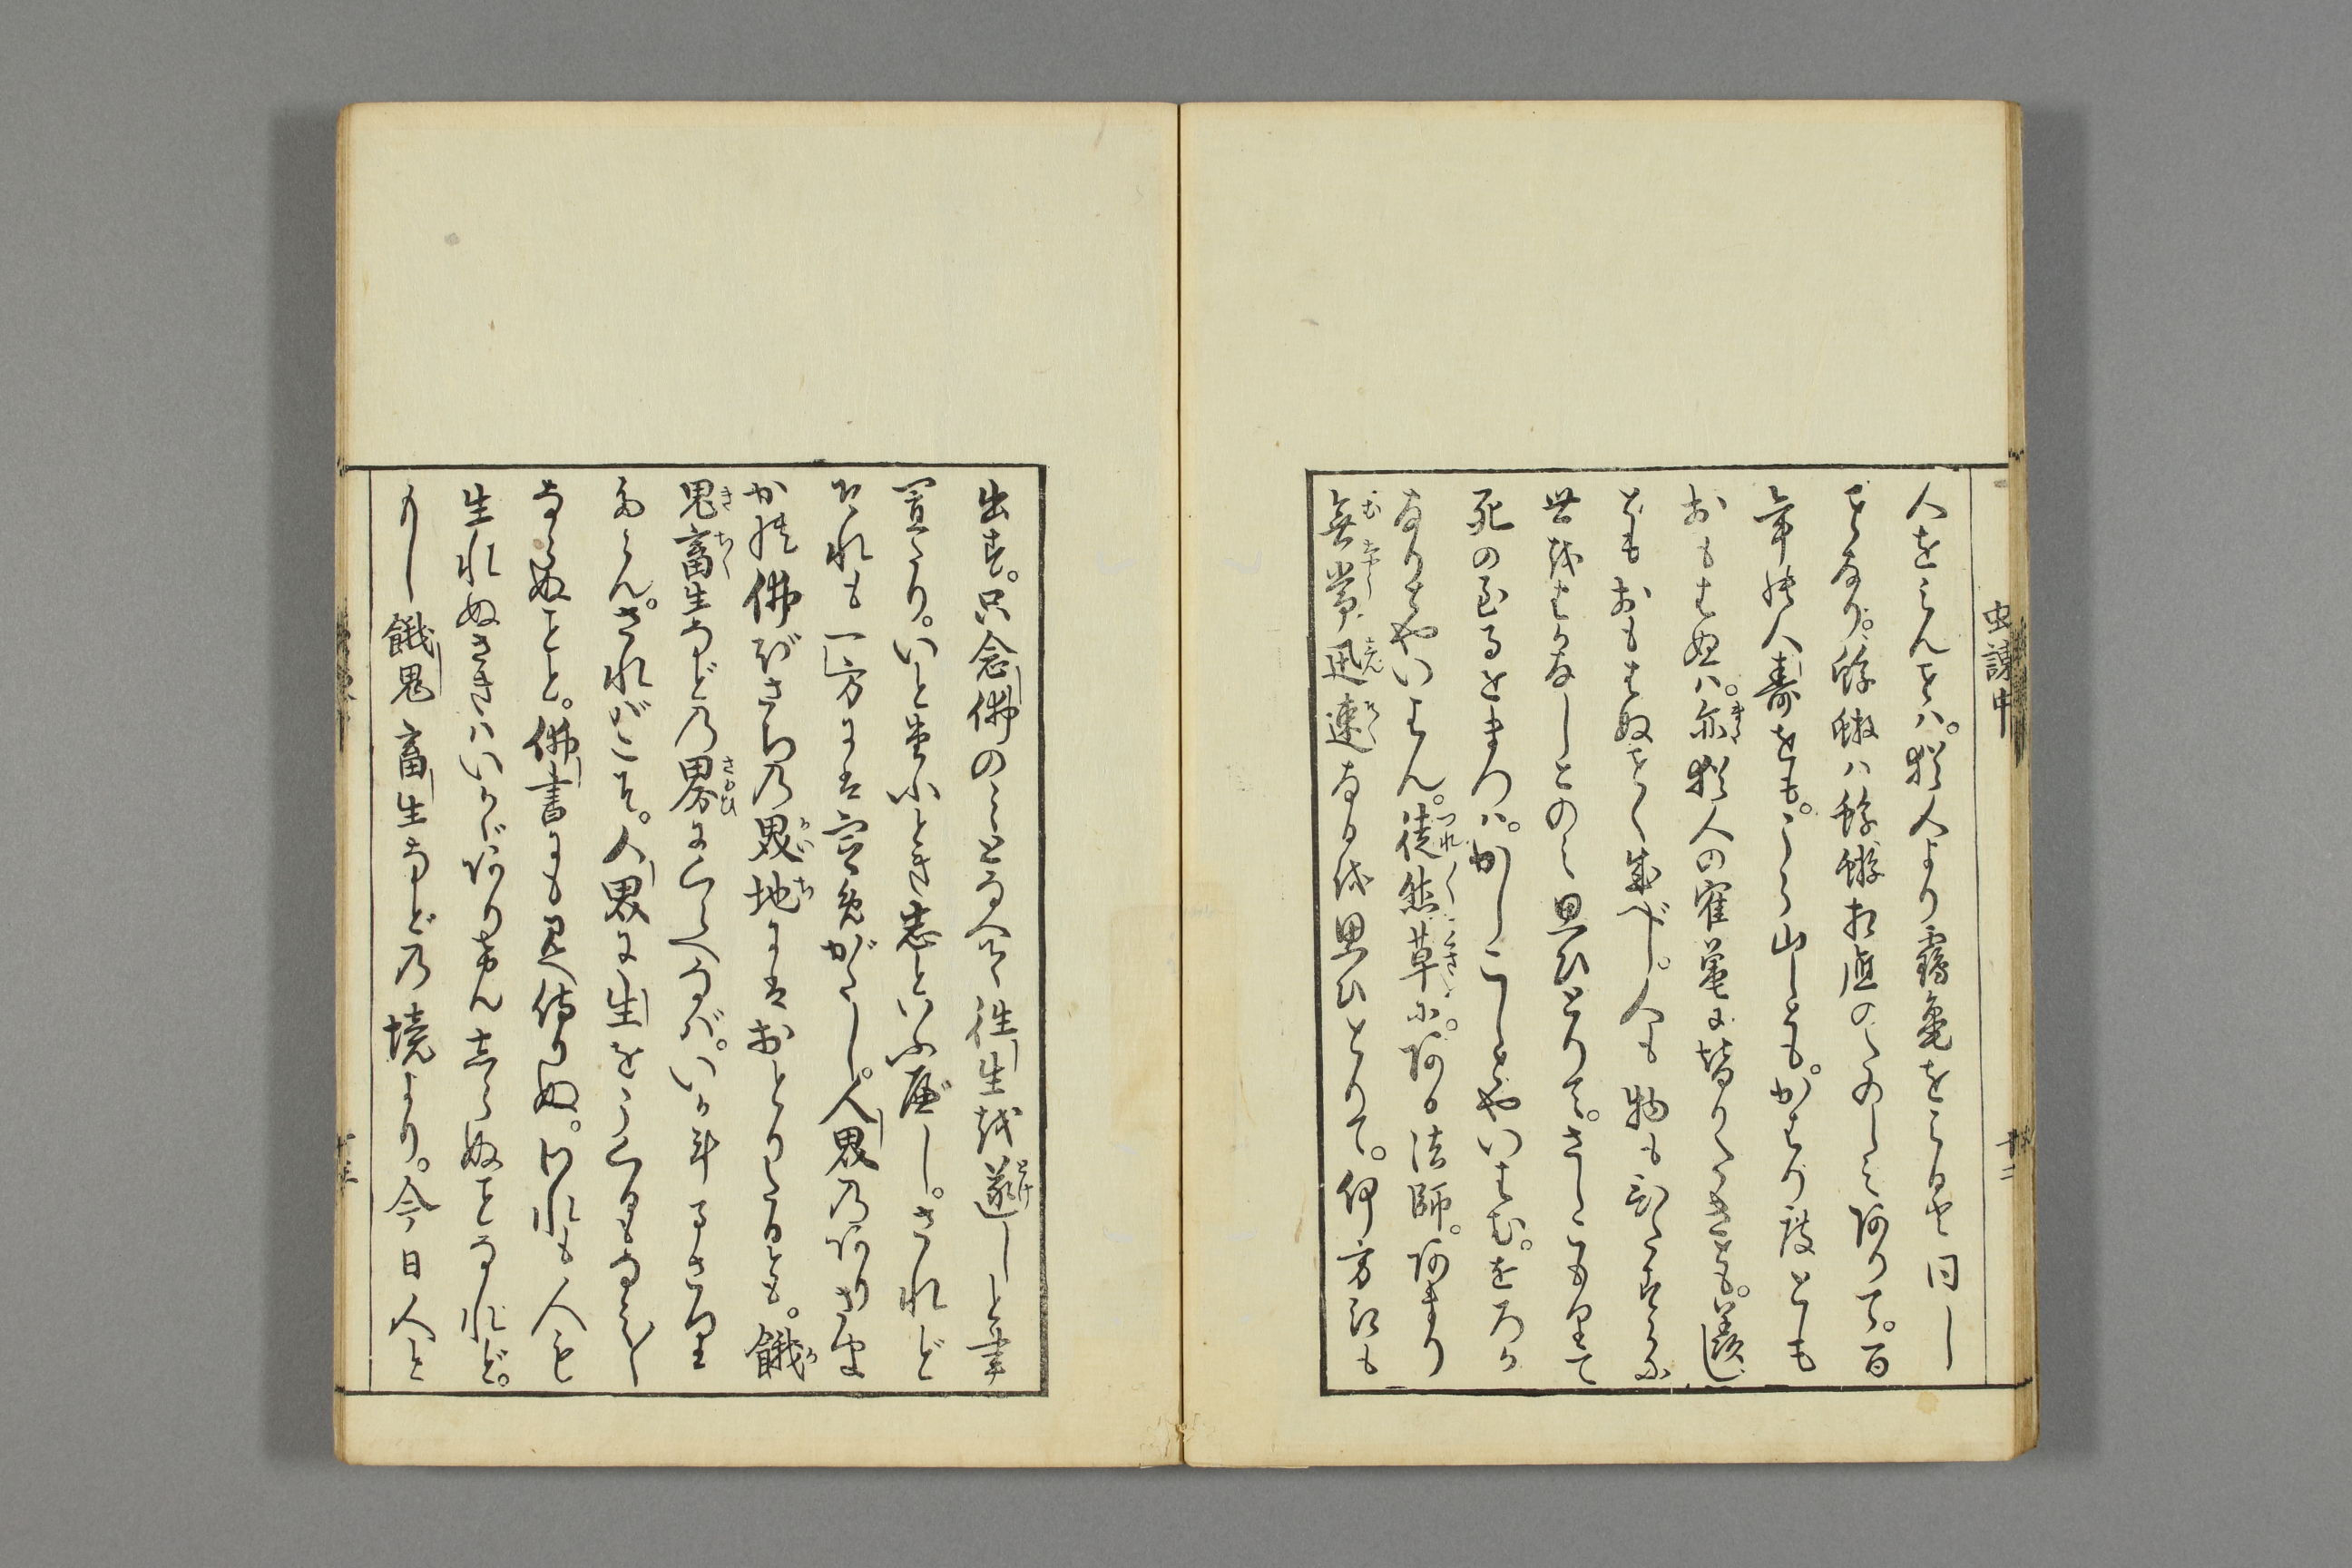 虫諌中
十二
人をみんことハ。猶人より靏亀をみること同し
ことなり。蜉蝣ハ蜉蝣相應のたのしみありて。百
年の人壽をも。うら山しとも。かはり度とも
おもはぬハ。亦猶人の靏亀に替りたきとも。羨し
ともおもはぬことく成べし。人も物も
世をはかなしとのみ思ひとりて。さしこもりて
死の至るをまつハ。かしこしとやいはむ。をろか
なりとやいはん。徒然草に。ある法師。あまり
無常迅速なるを思ひとりて。何方にも
出ず。只念佛のみとなへて往生を遂しと書
置たり。いと尊ふとき志といふ屋し。されど
それも一方には宜免がたし。人界のありさま
かの佛ざちの界地にはおとりたるとも。餓
鬼畜生などの界にくらべなば。いか斗まさり
ならん。さればこそ。人界に生をうくるもかたく
ならぬことと。佛書にも見へ侍りぬ。われも人も
生れぬさきハいかゞありけんしらぬことなれど。
もし餓鬼畜生などの境より。今日人と